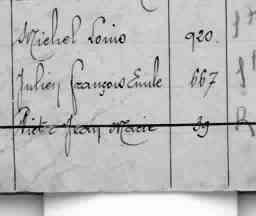 Michel Louis 920.
Julien François Emile 667
Jean Marie 39